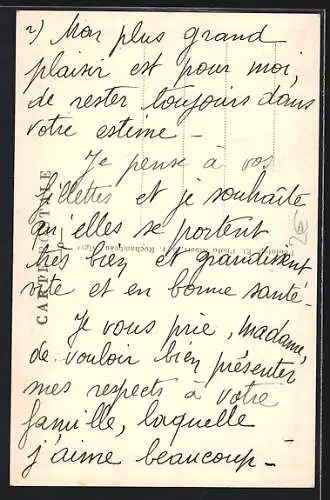 2) Mon plus grand
plaisir est pour moi,
de rester toujours dans
votre estime -
Je pense à vos
fillettes et je souhaite
qu'elles se portent
très bien et grandissent
vite et en bonne santé -
Je vous prie, madame,
de vouloir bien présenter
mes respects à votre
famille, laquelle
j'aime beaucoup -
CARTE POSTALE